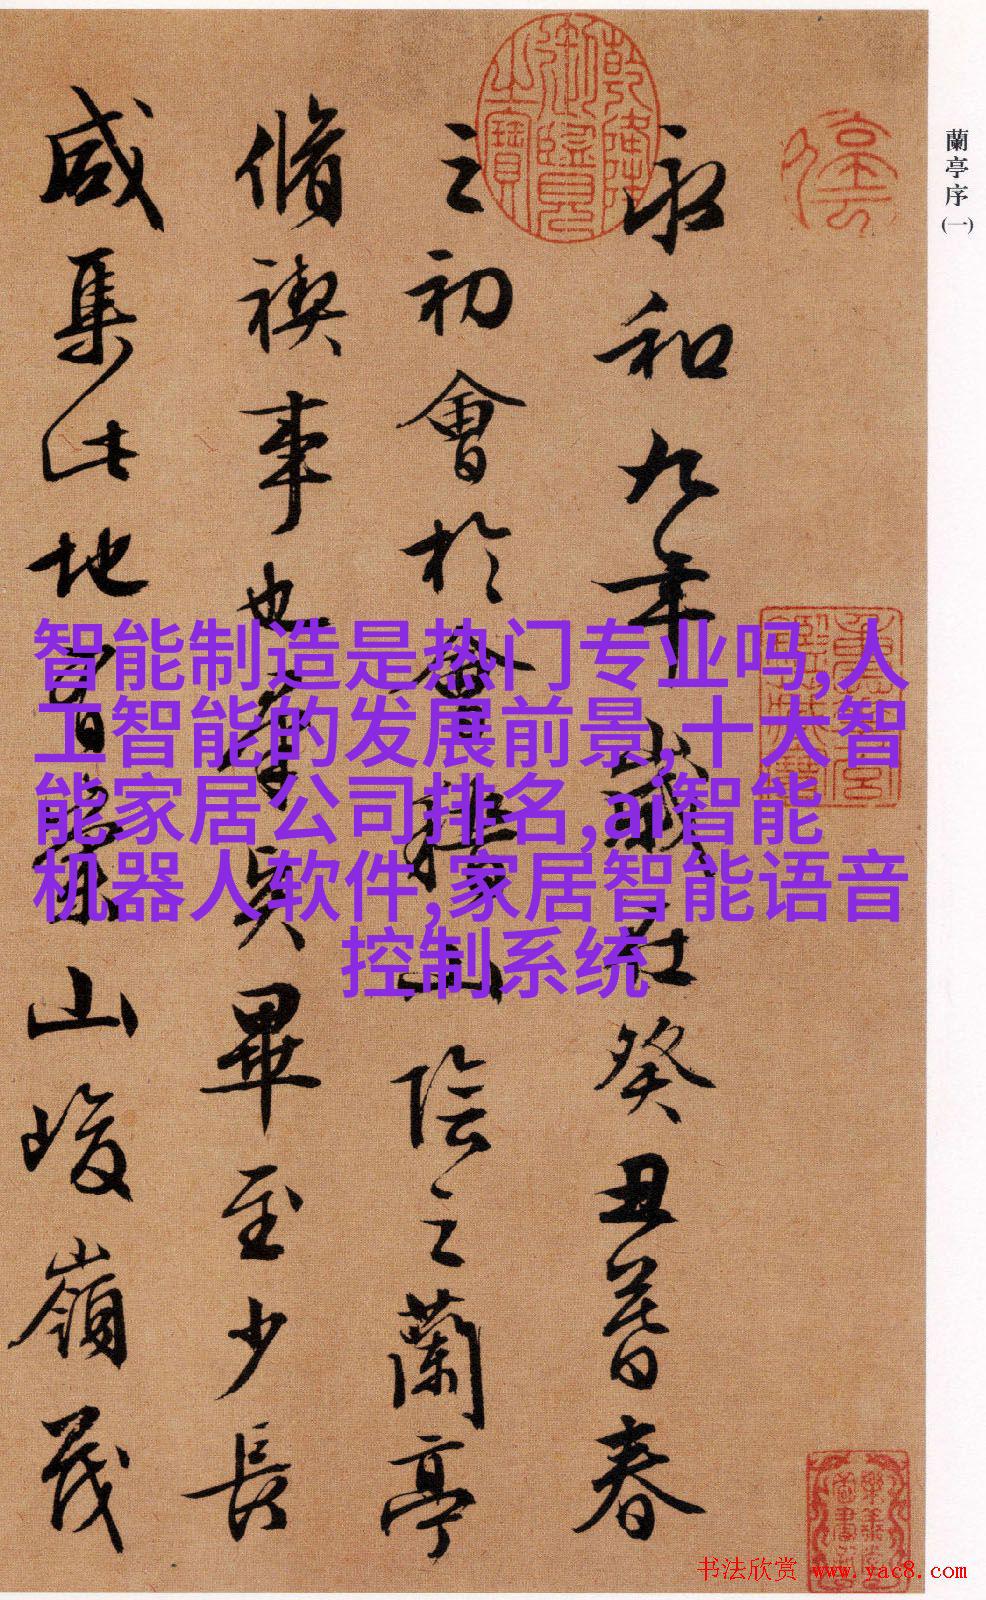 蘭亭序(一)
永和九年歲在癸丑暮春
之初會於會稽山陰之蘭亭
脩禊事也羣賢畢至少長
咸集此地有崇山峻嶺茂
乾隆御覽之寶
智能制造是热门专业吗,人
工智能的发展前景,十大智
能家居公司排名,ai智能
机器人软件,家居智能语音
控制系统
书法欣赏 www.yac8.com